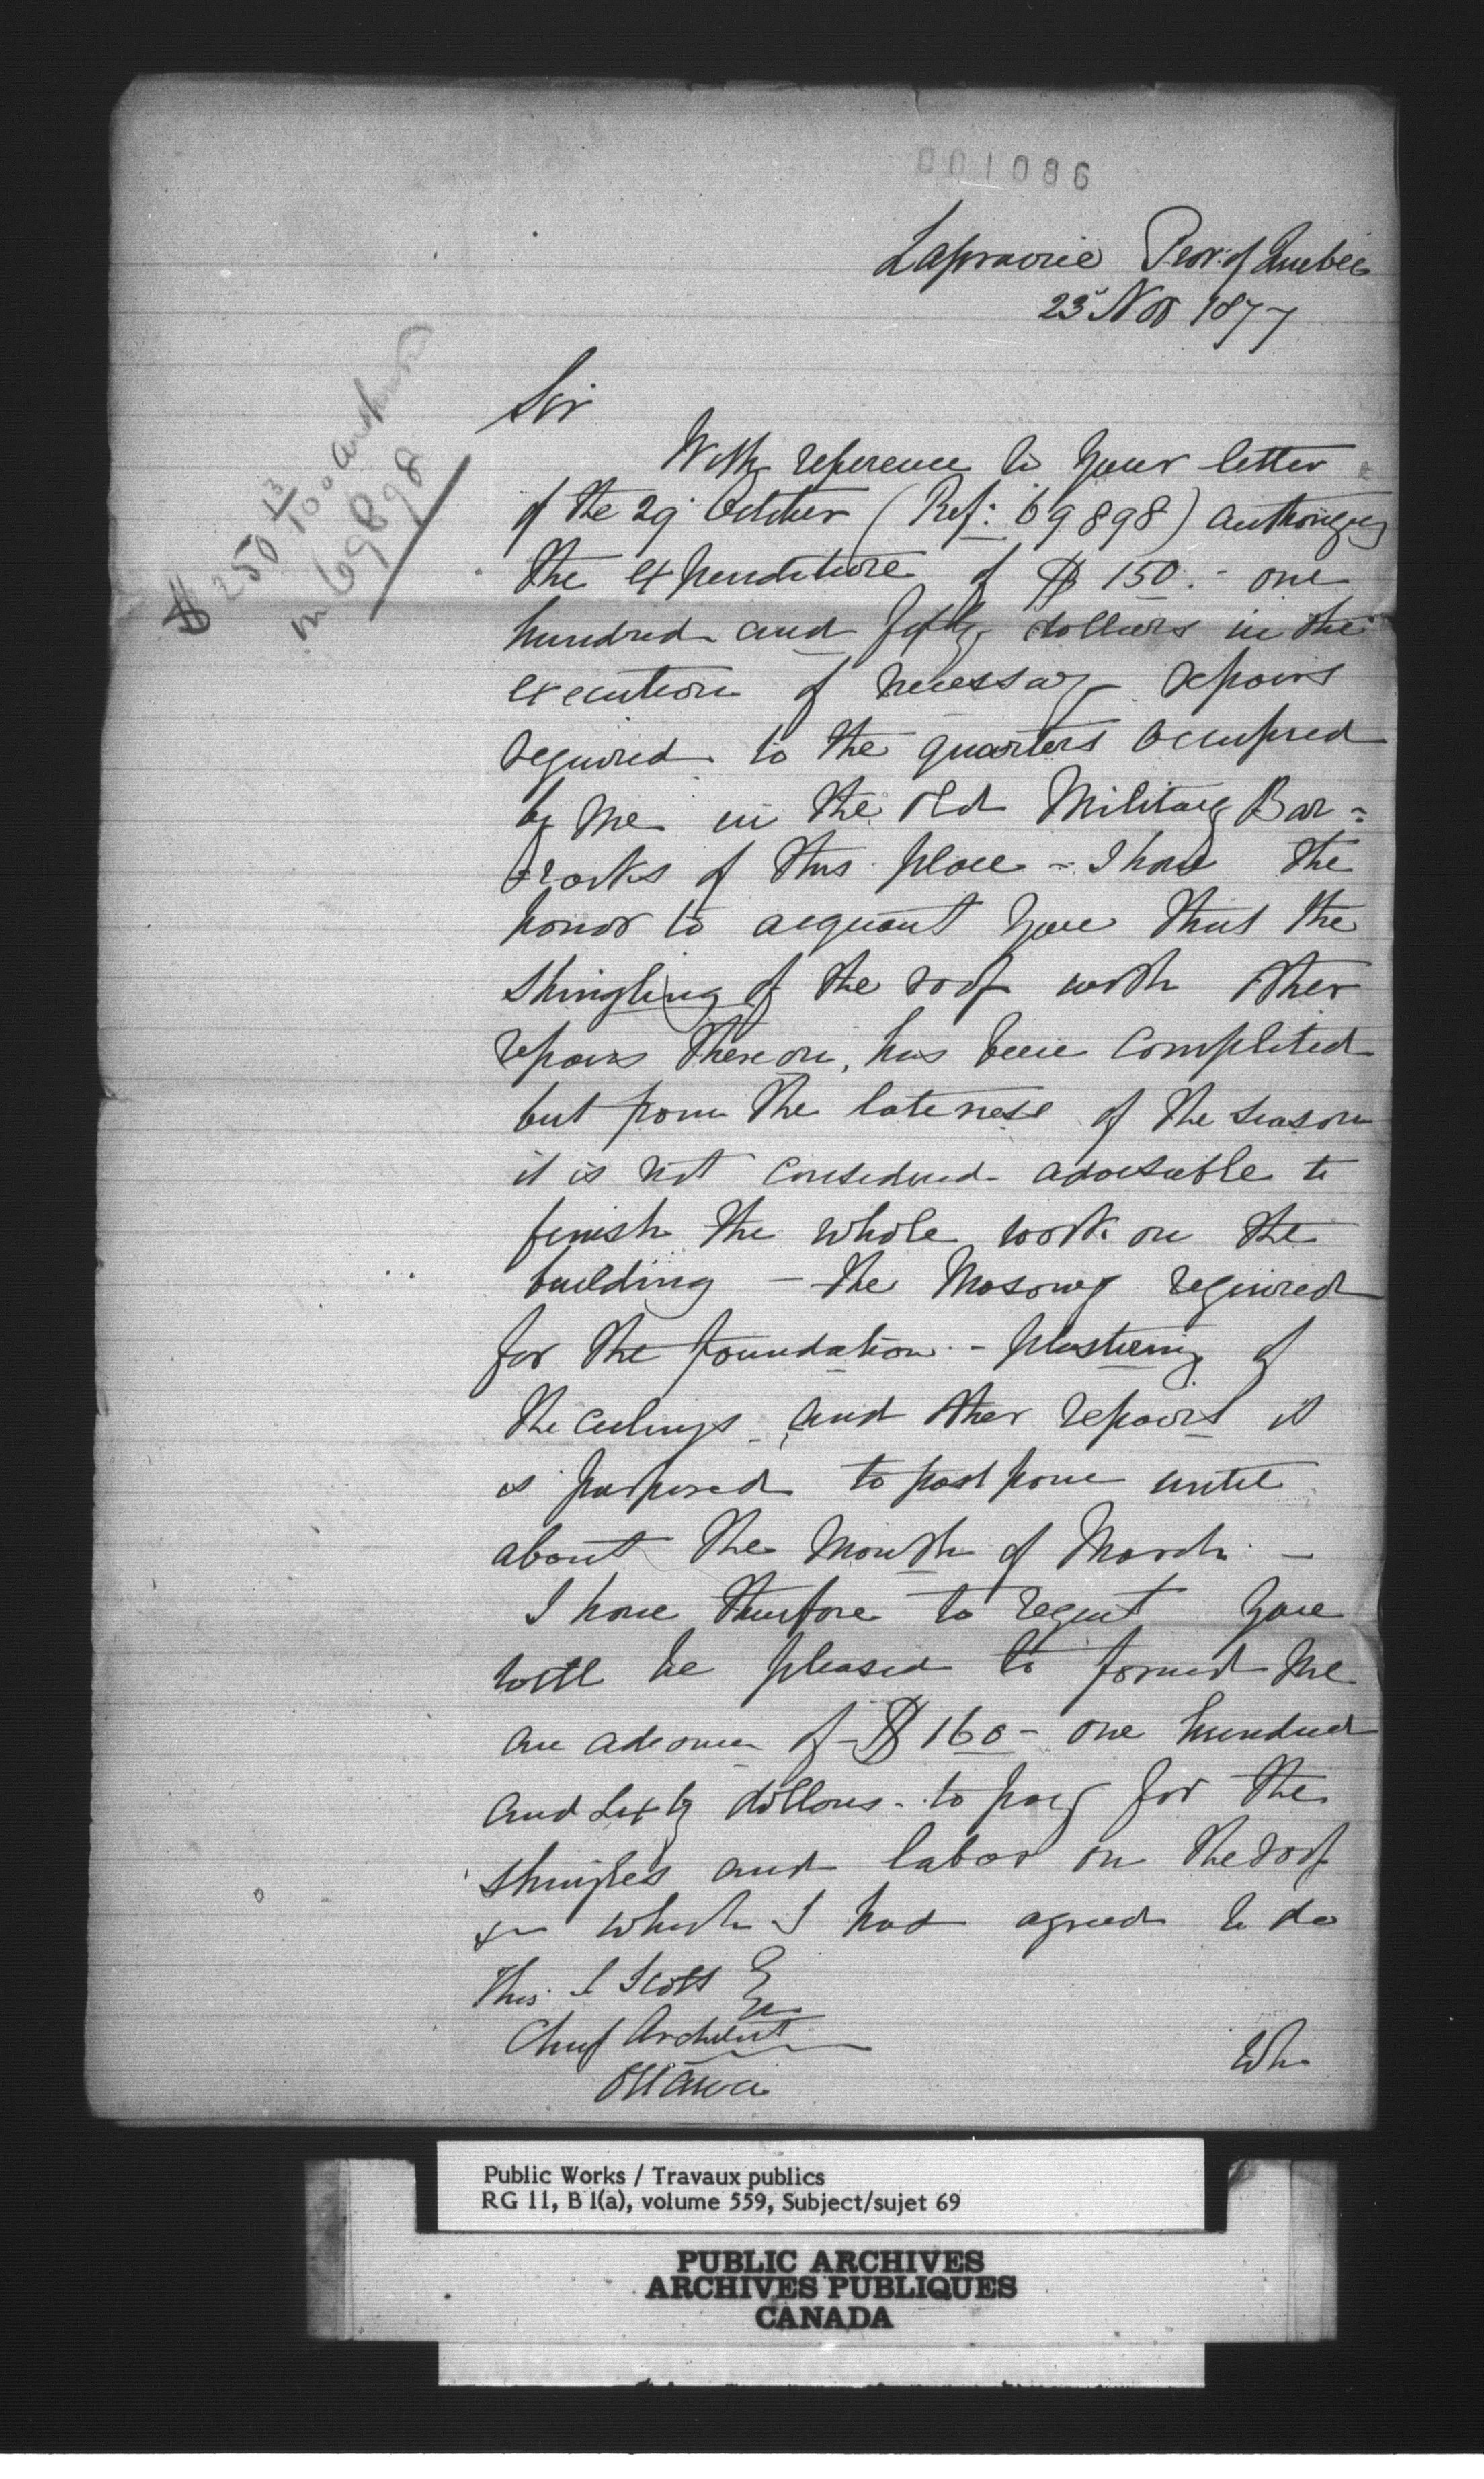 001086
Laprairie Prov: of Quebec
23 Nov 1877
$250 13/100 authorized
in 69898
Sir
With reference to your letter
of the 29 October (Ref: 69898) authorizing
the expenditure of $150.- one
hundred and fifty dollars in the
execution of necessary repairs
required to the quarters occupied
by me in the old Military Bar=
racks of this place - I have the
honor to acquaint you that the
shingling of the roof with other
repairs thereon, has been completed
but from the lateness of the season
it is not considered advisable to
finish the whole work on the
building - the Masonry required
for the foundation - plastering of
the ceilings - and other repairs it
is purposed to postpone until
about the month of March -
I have therefore to request you
will be pleased to forward me
an advance of $160 - one hundred
and sixty dollars - to pay for the
shingles and labor on the roof
which I had agreed to do
Thos. S Scott Esq
Chief Architect
Ottawa
Public Works / Travaux publics
RG 11, B 1(a), volume 559, Subject/sujet 69
PUBLIC ARCHIVES
ARCHIVES PUBLIQUES
CANADA